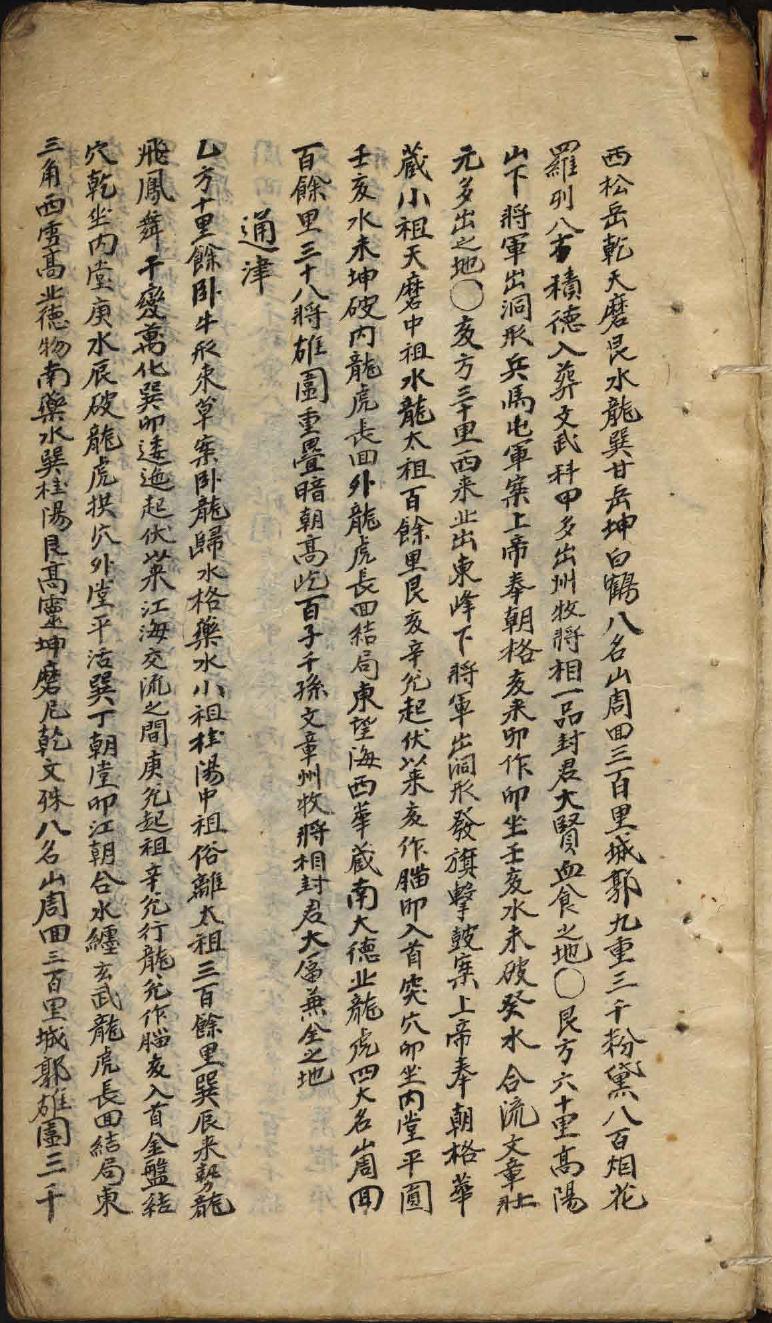 西松岳乾天磨艮水龍巽甘岳坤白鶴八名山周回三百里城郭九重三千粉黛八百烟花
羅列八方積德入葬文武科甲多出州牧將相一品封君大賢血食之地〇艮方六十里高陽
山下將軍出洞形兵馬屯軍案上帝奉朝格亥來卯作卯坐壬亥水未破癸水合流文章壯
元多出之地〇亥方三十里西來北出東峰下將軍出洞形發旗擊鼓案上帝奉朝格華
蔵小祖天磨中祖水龍太祖百餘里艮亥辛兌起伏以來亥作腦卯入首突穴卯坐內堂平圓
壬亥水未坤破內龍虎長回外龍虎長回結局東望海西華蔵南大德北龍虎四大名山周回
百餘里三十八將雄圍重疊暗朝高屹百子千孫文章州牧將相封君大富兼全之地
通津
乙方十里餘卧牛形束草案卧龍歸水格藥水小祖桂陽中祖俗離太祖三百餘里巽辰来勢龍
飛鳳舞千變萬化巽卯逶迤起伏以来江海交流之間庚兌起祖辛兌行龍兌作腦亥入首金盤結
穴乾坐內堂庚水辰破龍虎拱穴外堂平活巽丁朝堂卯江朝合水纏玄武龍虎長回結局東
三角西雪高北德物南藥水巽桂陽艮高靈坤磨尼乾文殊八名山周回三百里城郭雄圍三千